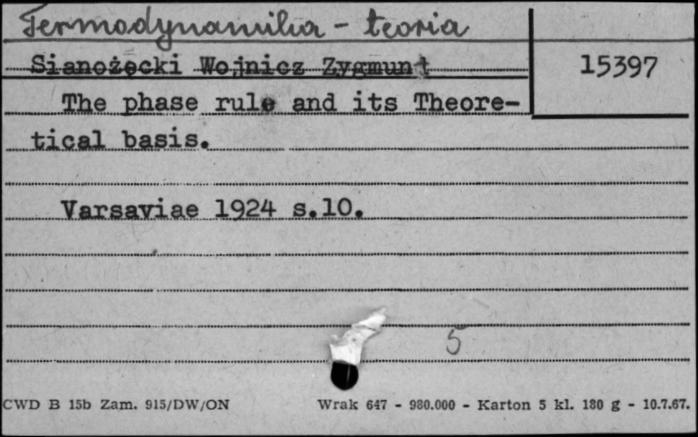 Termodynamika - teoria
Sianożęcki Wojnicz Zygmunt
15397
The phase rule and its Theore-
tical basis.
Varsaviae 1924 s.10.
5
CWD B 15b Zam. 915/DW/ON
Wrak 647 - 980.000 - Karton 5 kl. 180 g - 10.7.67.